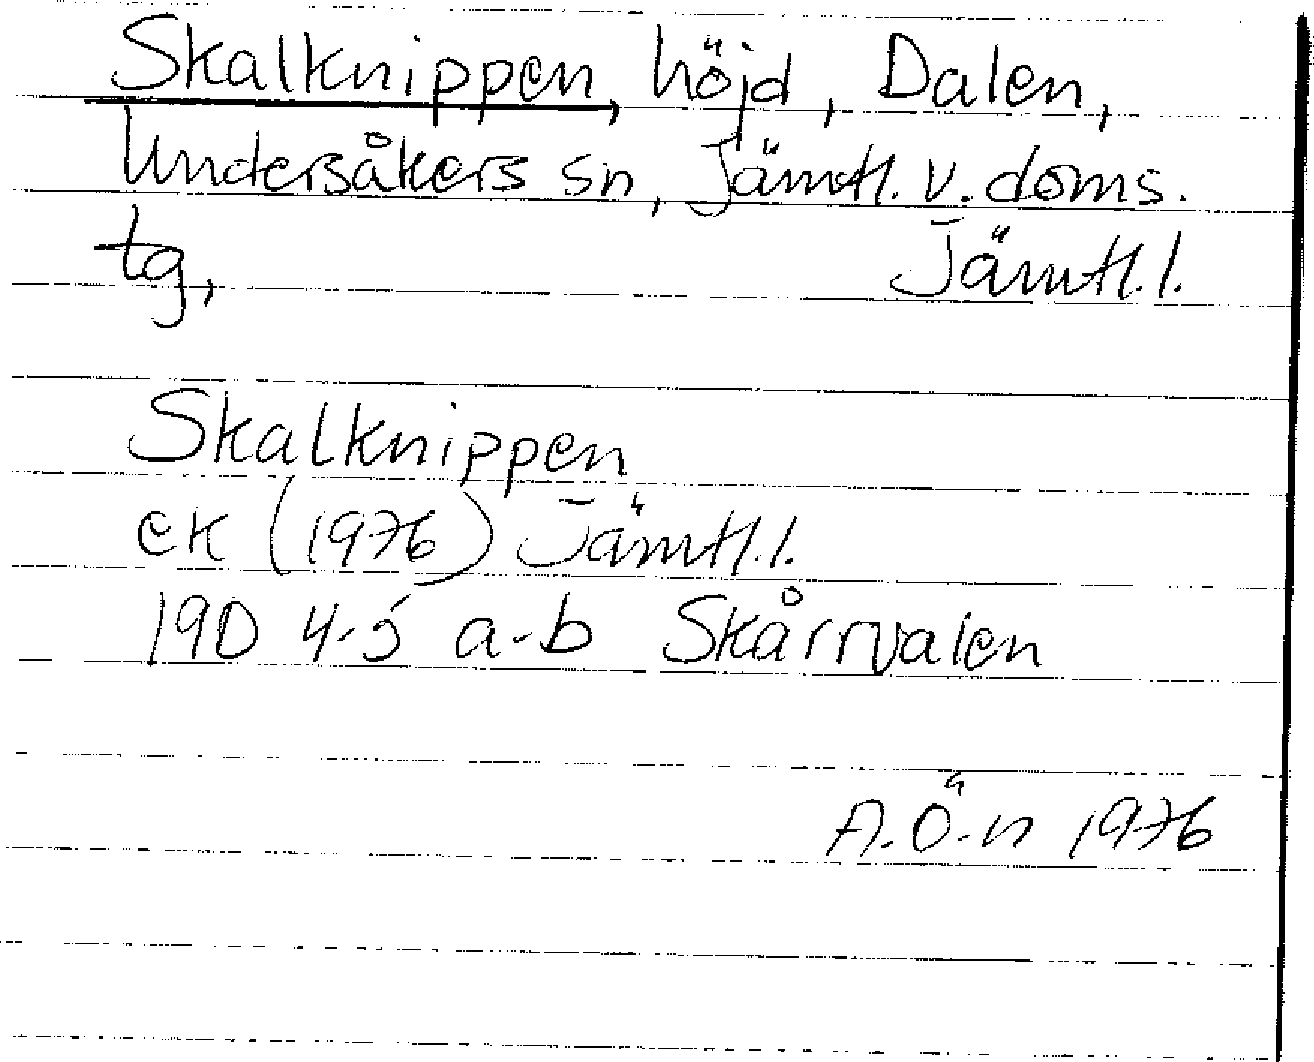 Skalknippen, höjd, Dalen,
Undersåkers sn, Jämtl. v. doms.
tg, Jämtl. l.
Skalknippen
ek (1976) Jämtl. l.
19D 4-5 a-b Skårrvalen
A. Ö-n 1976